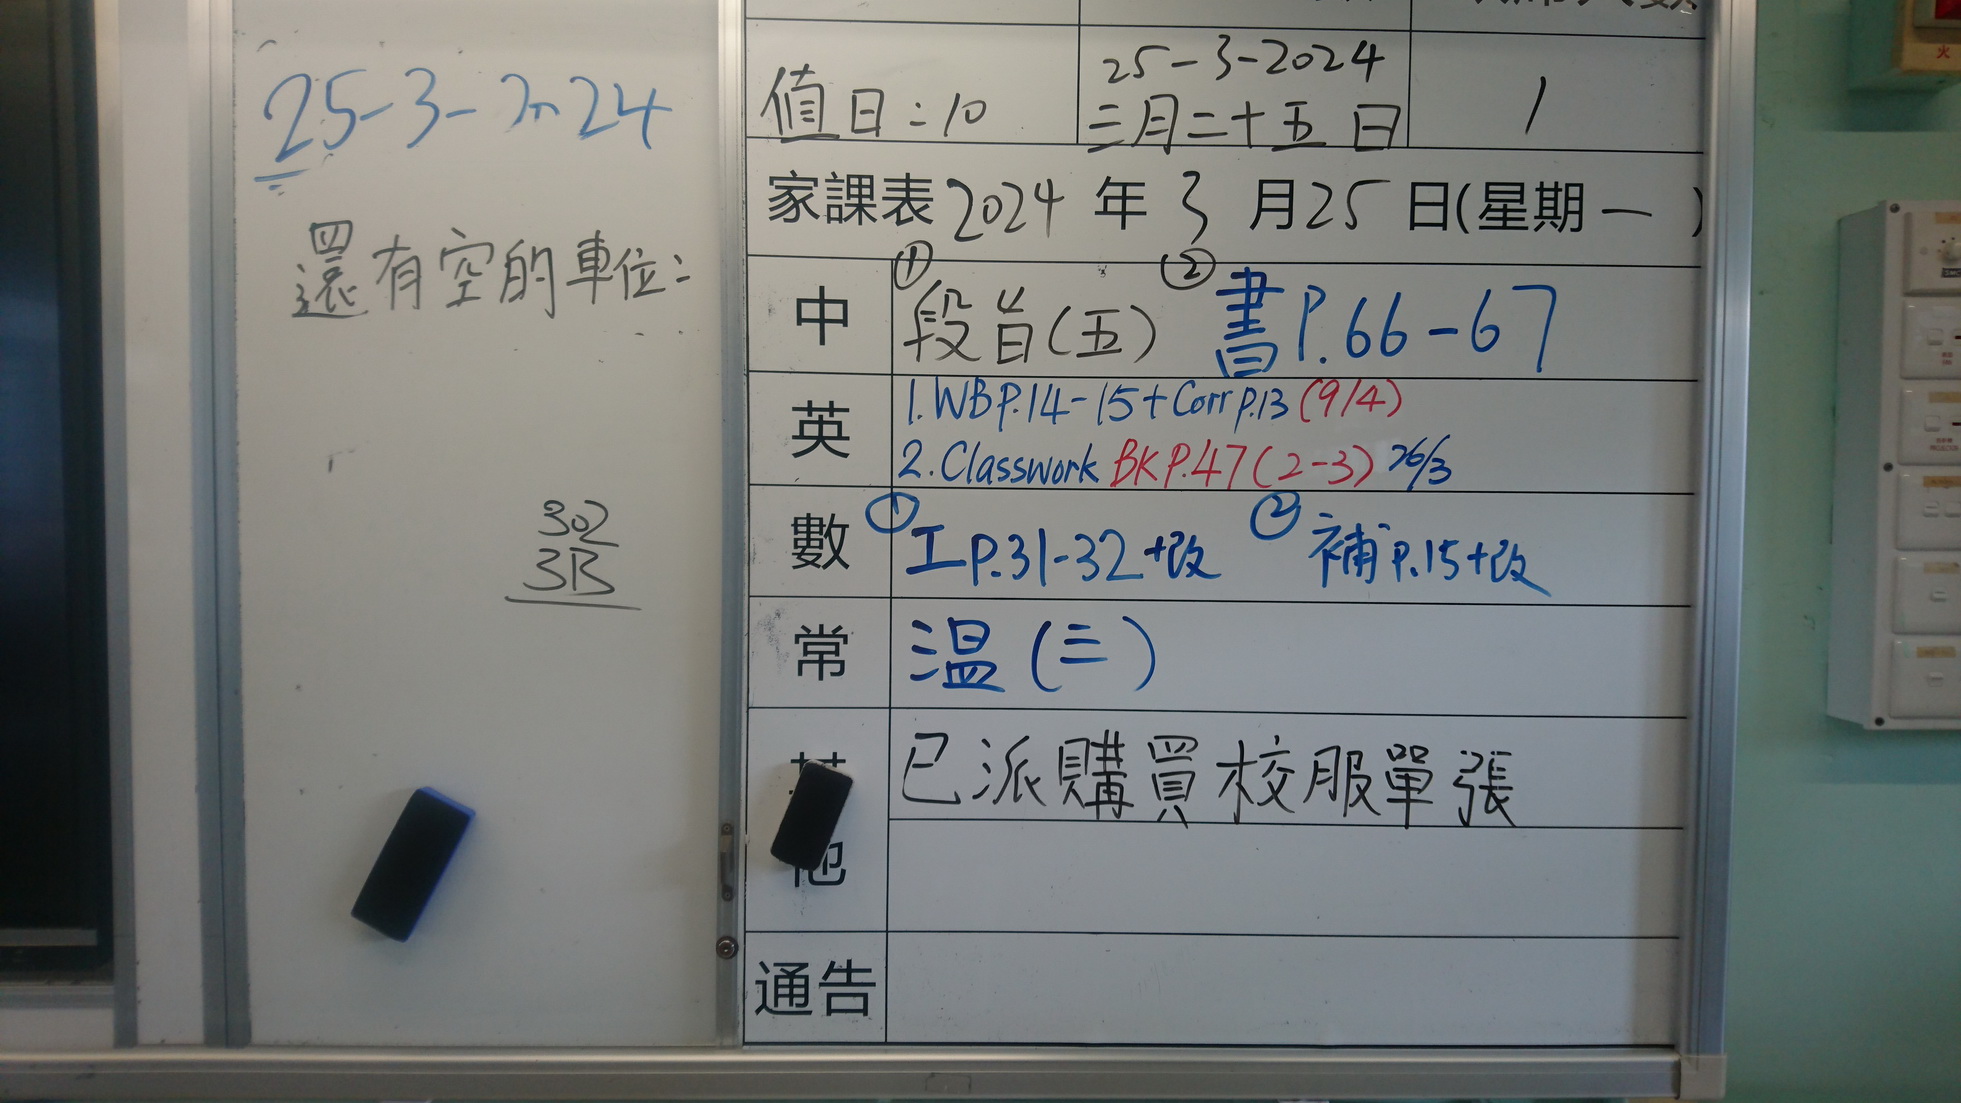 25-3-2024
還有空的車位:
302
3B
值日:10
25-3-2024
三月二十五日
1
家課表 2024 年 3 月 25 日(星期一)
中 ① 段旨(五) ② 書P.66-67
英 1. WB P.14-15+Corr p.13 (9/4)
2. Classwork BK P.47 (2-3) 26/3
數 ① 工P.31-32+改 ② 補P.15+改
常 溫(三)
其他 已派購買校服單張
通告
火